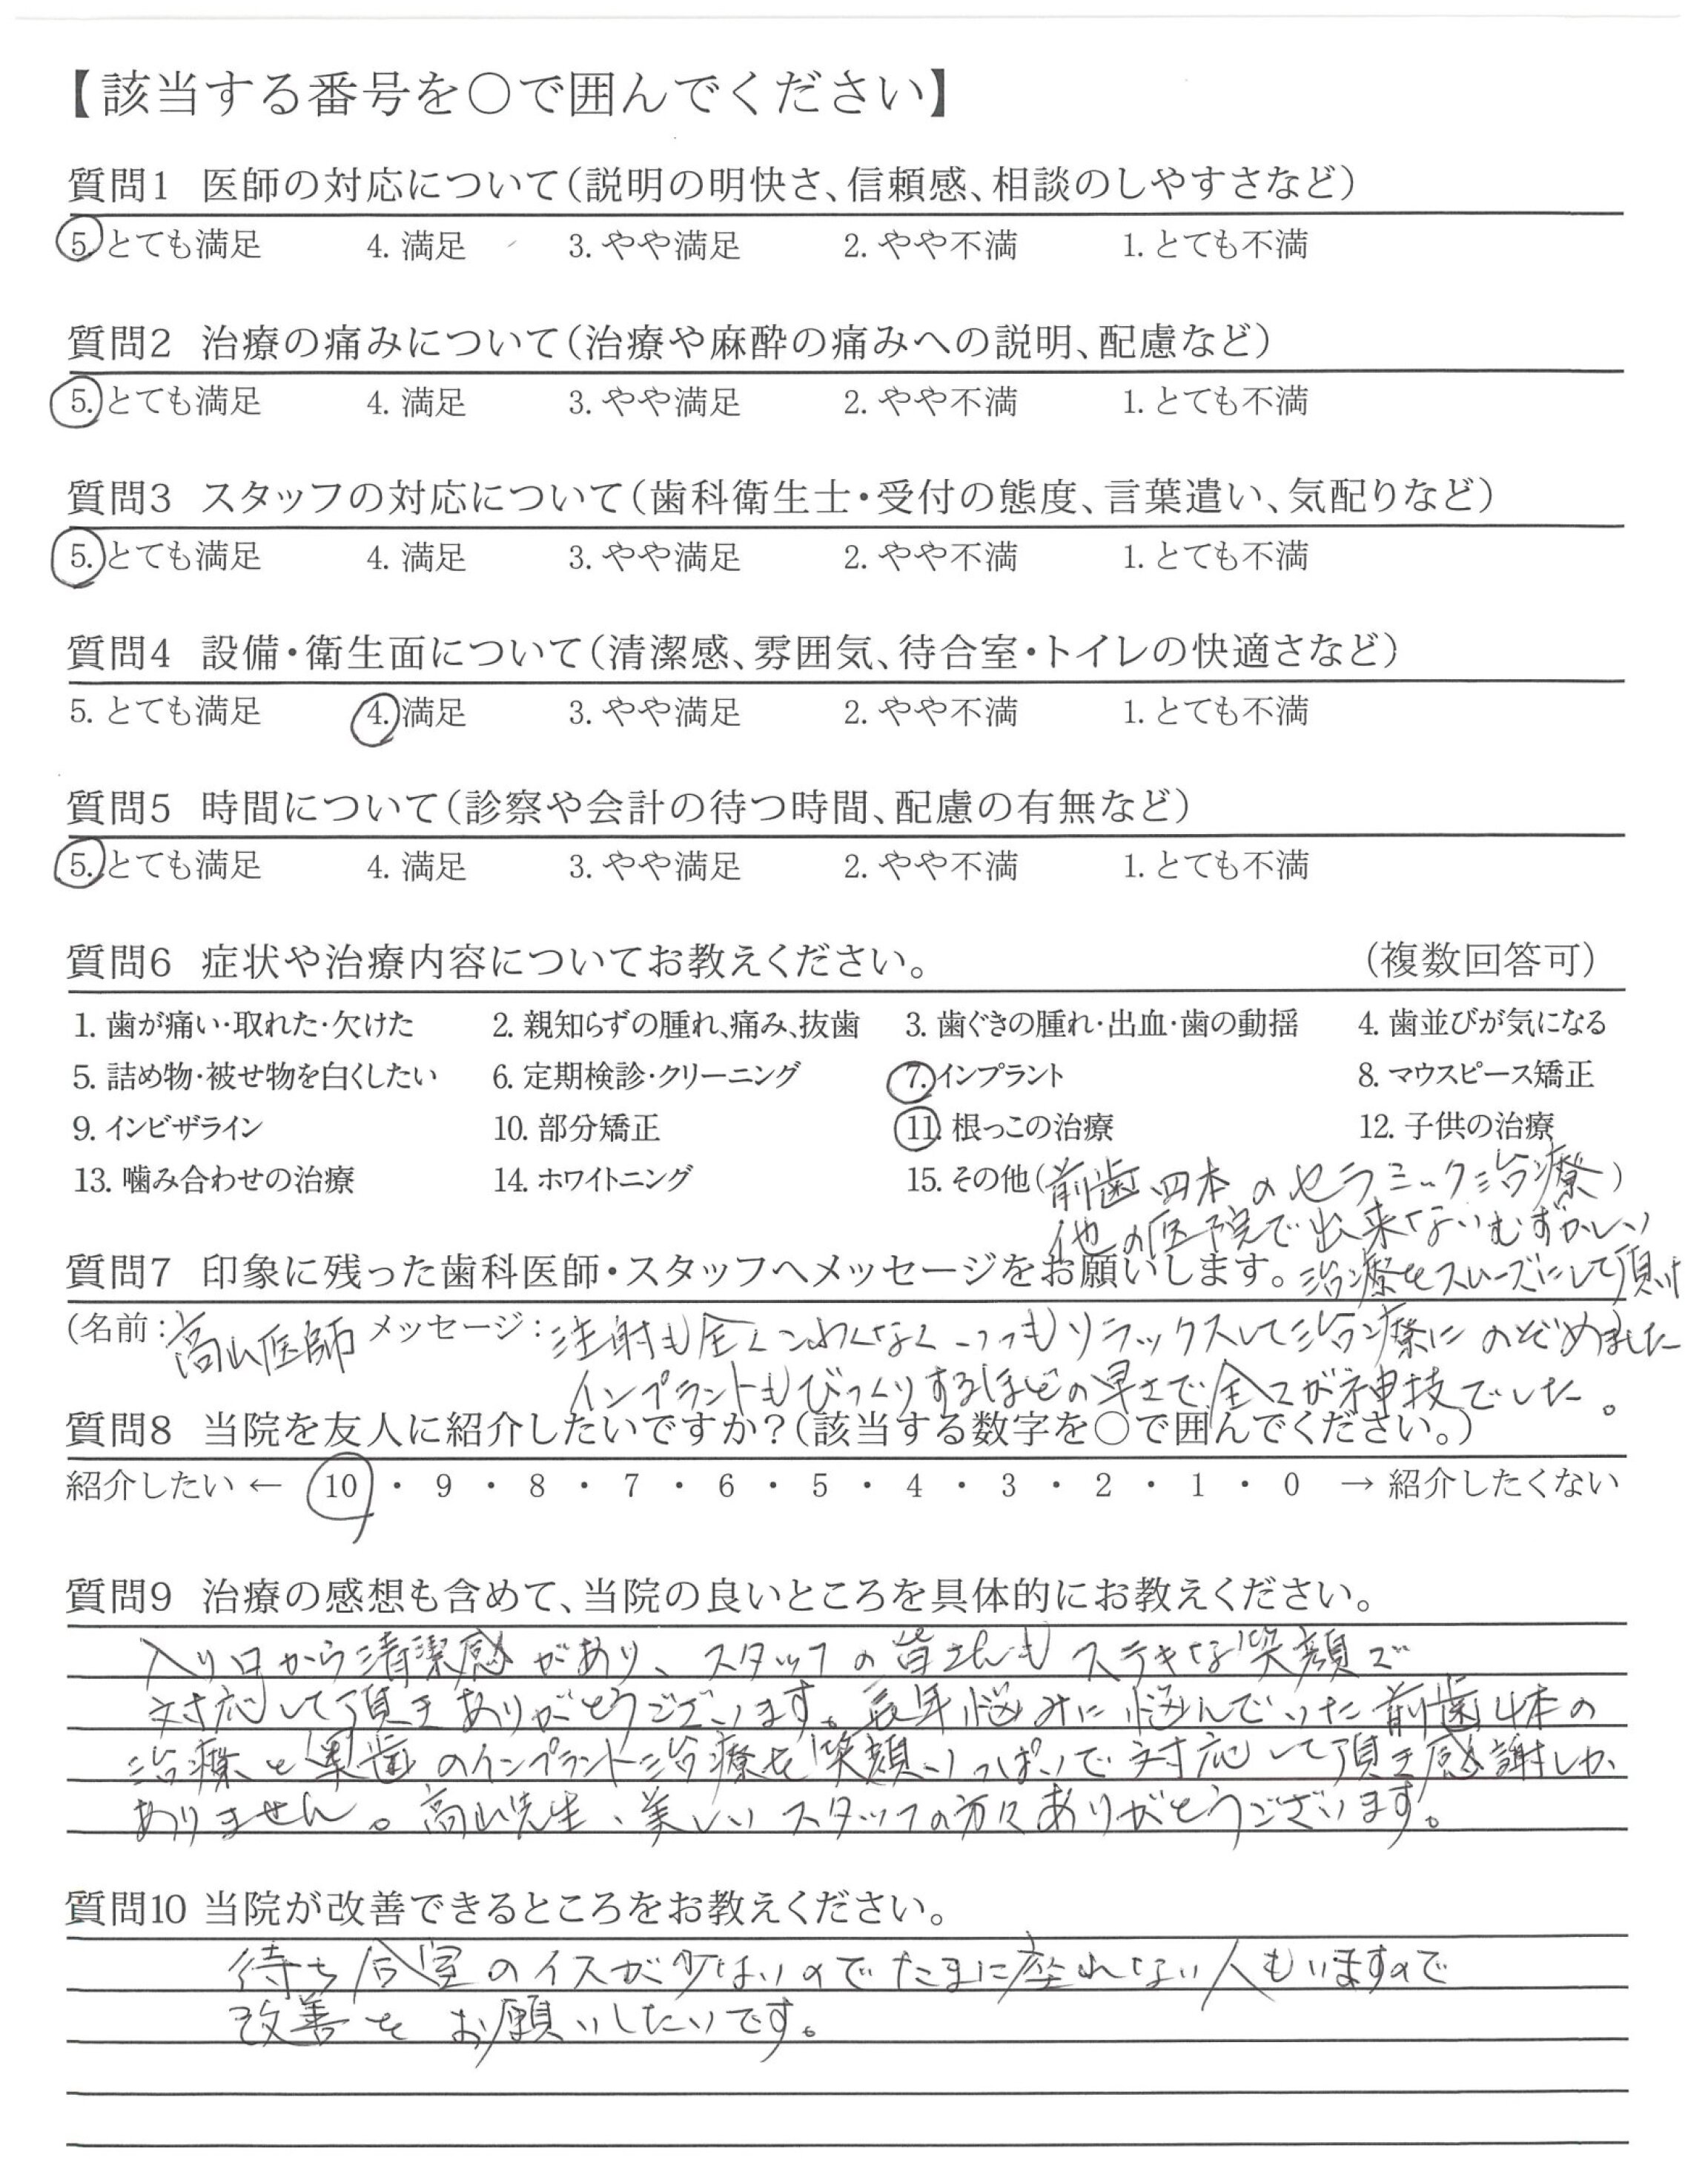 【該当する番号を○で囲んでください】
質問1 医師の対応について(説明の明快さ、信頼感、相談のしやすさなど)
5. とても満足 4. 満足 3. やや満足 2. やや不満 1. とても不満
質問2 治療の痛みについて(治療や麻酔の痛みへの説明、配慮など)
5. とても満足 4. 満足 3. やや満足 2. やや不満 1. とても不満
質問3 スタッフの対応について(歯科衛生士・受付の態度、言葉遣い、気配りなど)
5. とても満足 4. 満足 3. やや満足 2. やや不満 1. とても不満
質問4 設備・衛生面について(清潔感、雰囲気、待合室・トイレの快適さなど)
5. とても満足 4. 満足 3. やや満足 2. やや不満 1. とても不満
質問5 時間について(診察や会計の待つ時間、配慮の有無など)
5. とても満足 4. 満足 3. やや満足 2. やや不満 1. とても不満
質問6 症状や治療内容についてお教えください。 (複数回答可)
1. 歯が痛い・取れた・欠けた 2. 親知らずの腫れ、痛み、抜歯 3. 歯ぐきの腫れ・出血・歯の動揺 4. 歯並びが気になる
5. 詰め物・被せ物を白くしたい 6. 定期検診・クリーニング 7. インプラント 8. マウスピース矯正
9. インビザライン 10. 部分矯正 11. 根っこの治療 12. 子供の治療
13. 噛み合わせの治療 14. ホワイトニング 15. その他(前歯四本のセラミック治療)
他の医院で出来ないむずかしい
質問7 印象に残った歯科医師・スタッフへメッセージをお願いします。 治療をスムーズにして頂け
(名前:高山医師 メッセージ:注射も全くこわくなくいつもリラックスして治療にのぞめました
インプラントもびっくりするほどの早さで全てが神技でした。
質問8 当院を友人に紹介したいですか?(該当する数字を○で囲んでください。)
紹介したい ← 10 ・ 9 ・ 8 ・ 7 ・ 6 ・ 5 ・ 4 ・ 3 ・ 2 ・ 1 ・ 0 → 紹介したくない
質問9 治療の感想も含めて、当院の良いところを具体的にお教えください。
入り口から清潔感があり、スタッフの皆さんもステキな笑顔で
対応して頂きありがとうございます。長年悩みに悩んでいた前歯4本の
治療と奥歯のインプラント治療を笑顔いっぱいで対応して頂き感謝しか
ありません。高山先生、美しいスタッフの方々ありがとうございます。
質問10 当院が改善できるところをお教えください。
待ち合室のイスが少ないのでたまに座れない人もいますので
改善をお願いしたいです。